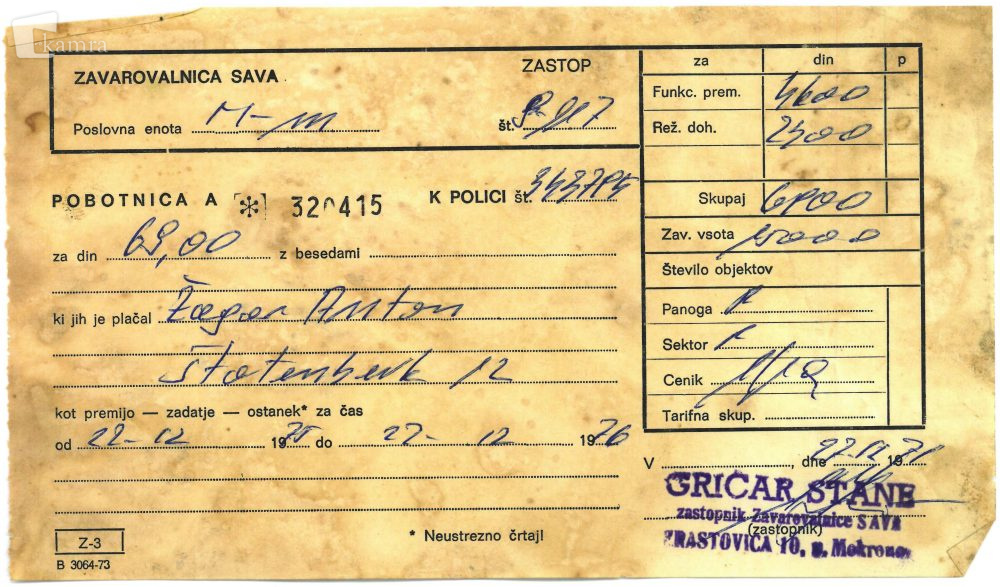 kamra
ZAVAROVALNICA SAVA
ZASTOP
Poslovna enota M-m
št.
za din p
Funkc. prem. 4600
Rež. doh. 2300
Skupaj 6900
Zav. vsota 15000
Število objektov
Panoga
Sektor
Cenik
Tarifna skup.
POBOTNICA A * 320415 K POLICI št.
za din 69,00 z besedami
ki jih je plačal Žagar Anton
Štatenberk 12
kot premijo — zadatje — ostanek* za čas
od 22-12 1975 do 22- 12 1976
V , dne 19
GRIČAR STANE
zastopnik Zavarovalnice SAVA
(zastopnik)
HRASTOVICA 10, p. Mokronog
* Neustrezno črtaj!
Z-3
B 3064-73